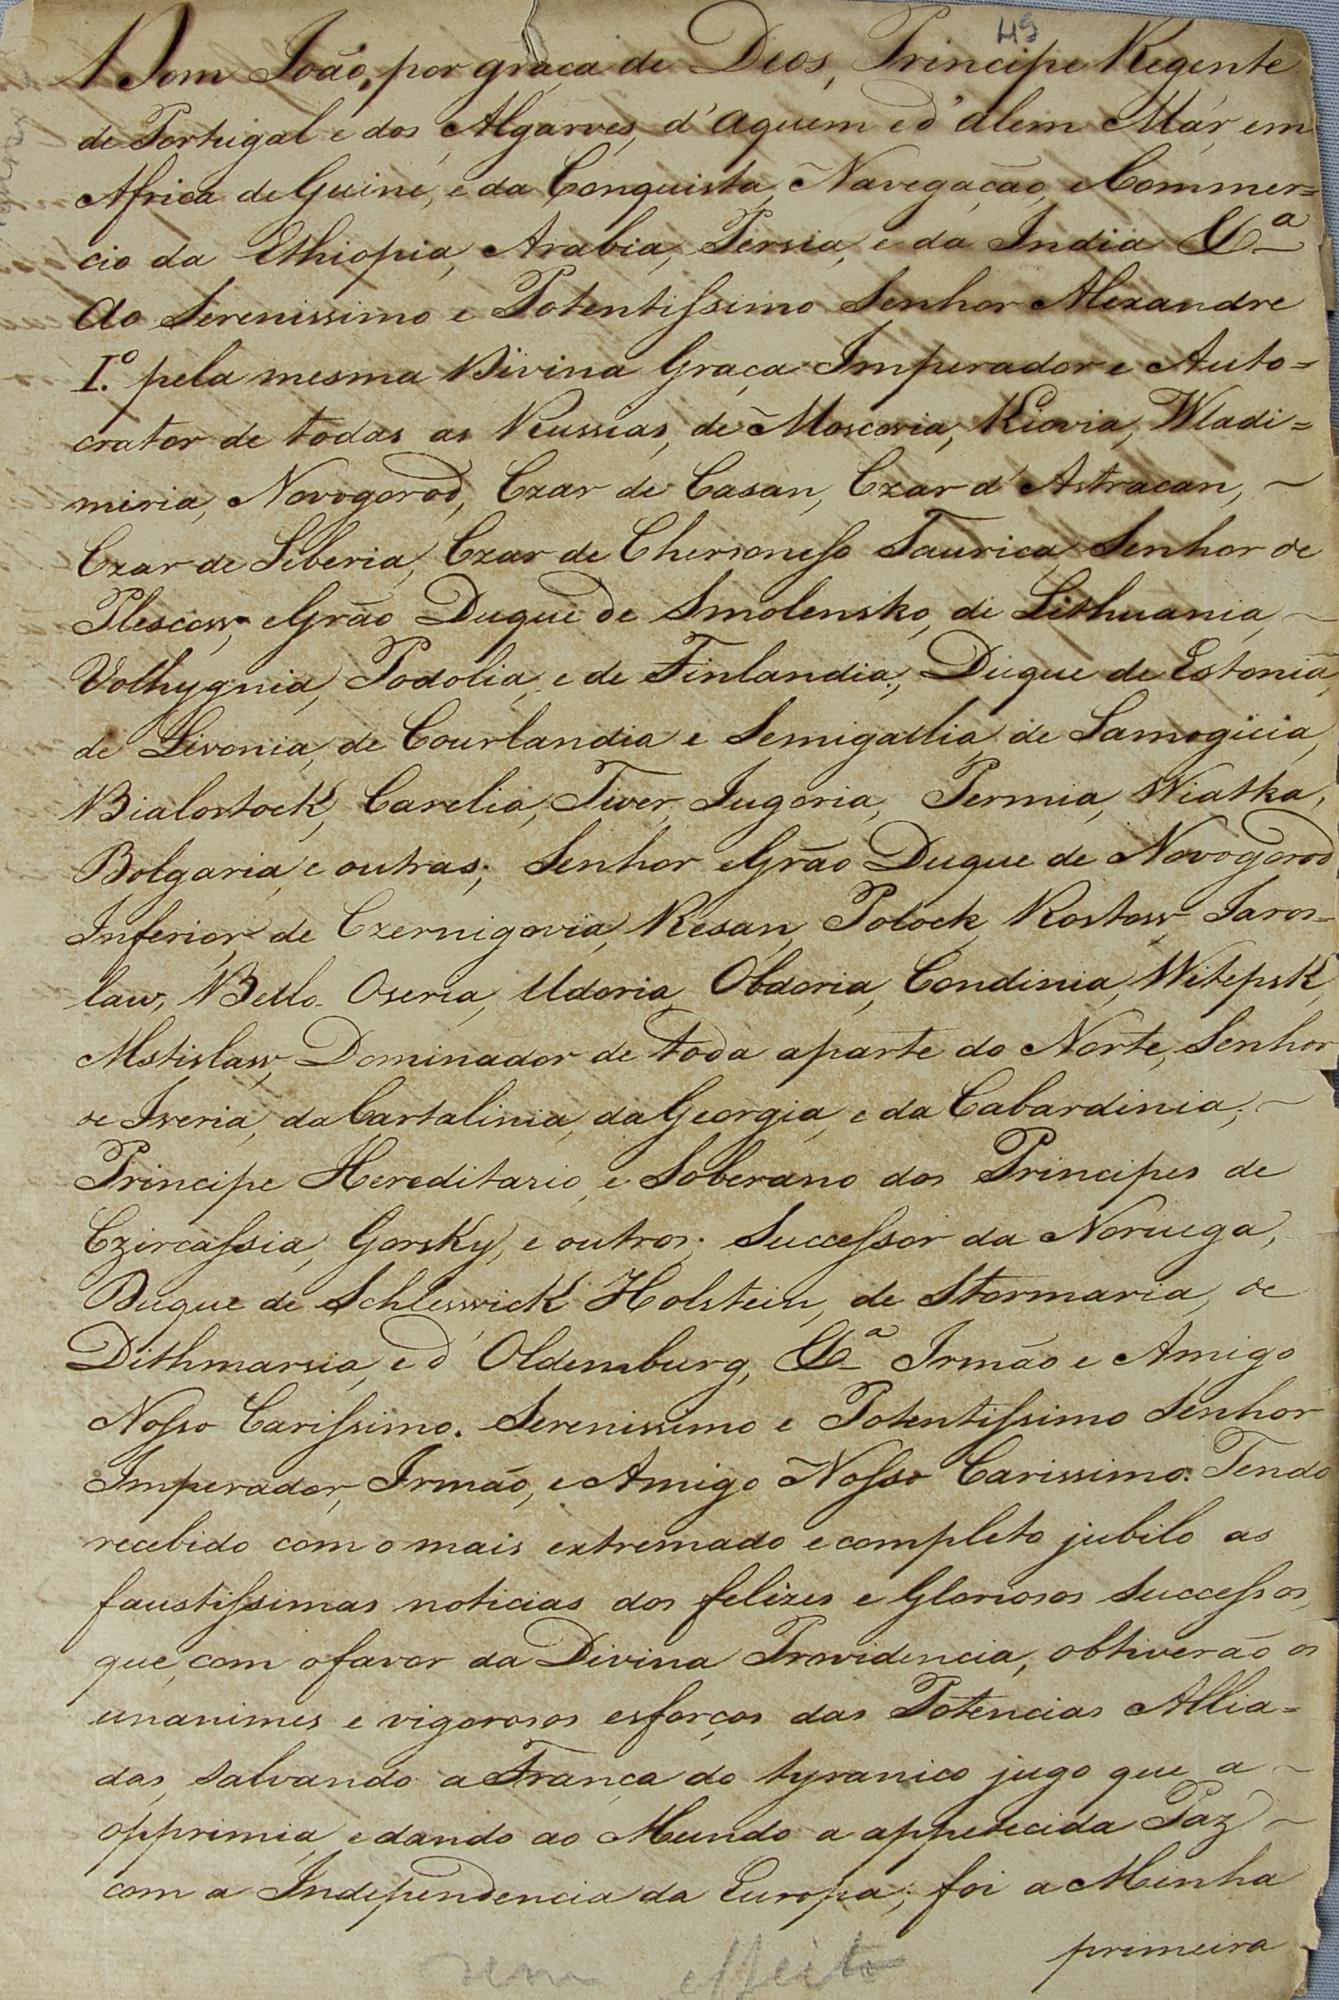 49
Dom João, por graça de Deos, Principe Regente
de Portugal e dos Algarves, d'aquem e d'alem Mar, em
Africa de Guiné, e da Conquista, Navegação, e Commer=
cio da Ethiopia, Arabia, Persia, e da India &.ª
Ao Serenissimo e Potentissimo Senhor Alexandre
I.º pela mesma Divina Graça Imperador e Auto=
crator de todas as Russias, de Moscovia, Kiovia, Wladi=
miria, Novogorod, Czar de Casan, Czar d'Astracan, ~
Czar de Siberia, Czar de Chersonesso Taurica, Senhor de
Plescow, e Grão Duque de Smolensko, de Lithuania, ~
Volhygnia, Podolia, e de Finlandia; Duque de Estonia,
de Livonia, de Courlandia e Semigallia, de Samogicia,
Bialostock, Carelia, Twer, Jugoria, Permia, Wiatka,
Bolgaria, e outras; Senhor e Grão Duque de Novogorod
Inferior, de Czernigovia, Resan, Polock, Rostow, Jaros=
law, Bello-Oseria, Udoria, Obdoria, Condinia, Witepsk,
Mstislaw, Dominador de toda a parte do Norte, Senhor
de Iveria, da Cartalinia, da Georgia, e da Cabardinia; ~
Principe Hereditario, e Soberano dos Principes de
Czircassia, Gorsky, e outros; Successor da Noruega,
Duque de Schleswick Holstein, de Stormaria, de
Dithmarsia, e d'Oldemburg, &.ª Irmão e Amigo
Nosso Carissimo. Serenissimo e Potentissimo Senhor
Imperador, Irmão, e Amigo Nosso Carissimo. Tendo
recebido com o mais extremado e completo jubilo as
faustissimas noticias dos felizes e Gloriosos Successos,
que, com o favor da Divina Providencia, obtiverão os
unanimes e vigorosos esforços das Potencias Allia=
das, salvando a França do tyranico jugo que a ~
opprimia, e dando ao Mundo a appetecida Paz ~
com a Independencia da Europa; foi a Minha
primeira
sem effeito